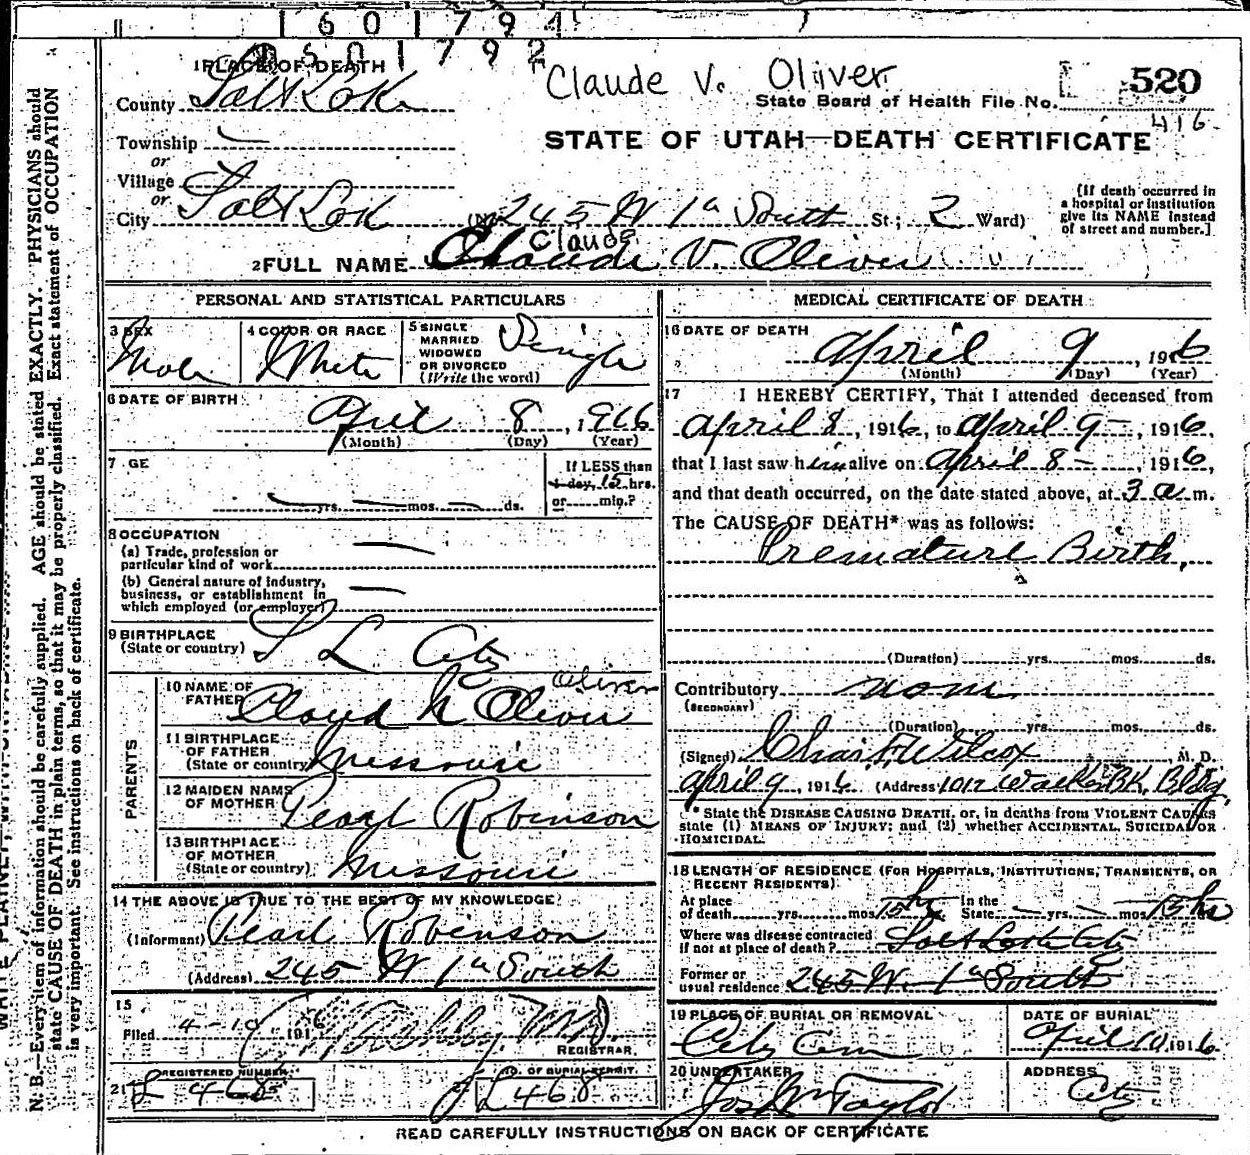 1601794
1601792
Claude V. Oliver
1 PLACE OF DEATH
County Salt Lake
State Board of Health File No. 520
416
Township —
or
STATE OF UTAH—DEATH CERTIFICATE
Village
or
City Salt Lake (No 245 W 1st South St.; 2 Ward)
(If death occurred in
a hospital or institution
give its NAME instead
of street and number.]
Claude
2 FULL NAME Claude V. Oliver
PERSONAL AND STATISTICAL PARTICULARS
3 SEX Male
4 COLOR OR RACE White
5 SINGLE
MARRIED
WIDOWED
OR DIVORCED
(Write the word) Single
6 DATE OF BIRTH
April 8, 1916
(Month) (Day) (Year)
7 GE
— yrs. — mos. — ds.
If LESS than
1 day, 15 hrs.
or min.?
8 OCCUPATION
(a) Trade, profession or
particular kind of work —
(b) General nature of industry,
business, or establishment in
which employed (or employer) —
9 BIRTHPLACE
(State or country) S L City
PARENTS
10 NAME OF
FATHER Oliver
11 BIRTHPLACE
OF FATHER
(State or country) Missouri
12 MAIDEN NAME
OF MOTHER Pearl Robinson
13 BIRTHPLACE
OF MOTHER
(State or country) Missouri
14 THE ABOVE IS TRUE TO THE BEST OF MY KNOWLEDGE
(Informant) Pearl Robinson
(Address) 245 W 1st South
15
Filed 4-10 1916
REGISTRAR.
21 REGISTERED NUMBER L 468
NO. OF BURIAL PERMIT L 468
MEDICAL CERTIFICATE OF DEATH
16 DATE OF DEATH
April 9, 1916
(Month) (Day) (Year)
17 I HEREBY CERTIFY, That I attended deceased from
April 8, 1916, to April 9—, 1916,
that I last saw him alive on April 8—, 1916,
and that death occurred, on the date stated above, at 3 a m.
The CAUSE OF DEATH* was as follows:
Premature Birth,
(Duration) yrs. mos. ds.
Contributory none
(SECONDARY)
(Duration) yrs. mos. ds.
(Signed) Chas F. Wilcox, M. D.
April 9, 1916 (Address) 1012 Walker BK. Bldg.
* State the DISEASE CAUSING DEATH, or, in deaths from VIOLENT CAUSES
state (1) MEANS OF INJURY; and (2) whether ACCIDENTAL, SUICIDAL OR
HOMICIDAL.
18 LENGTH OF RESIDENCE (FOR HOSPITALS, INSTITUTIONS, TRANSIENTS, OR
RECENT RESIDENTS)
At place
of death yrs. mos. 15 hrs In the
State — yrs. — mos. 15 hrs
Where was disease contracted
if not at place of death? Salt Lake City
Former or
usual residence 245 W. 1st South
19 PLACE OF BURIAL OR REMOVAL
City Cem
DATE OF BURIAL
April 10, 1916
20 UNDERTAKER
Jos Wm Taylor
ADDRESS
City
READ CAREFULLY INSTRUCTIONS ON BACK OF CERTIFICATE
N. B.—Every item of information should be carefully supplied. AGE should be stated EXACTLY. PHYSICIANS should
state CAUSE OF DEATH in plain terms, so that it may be properly classified. Exact statement of OCCUPATION
is very important. See instructions on back of certificate.